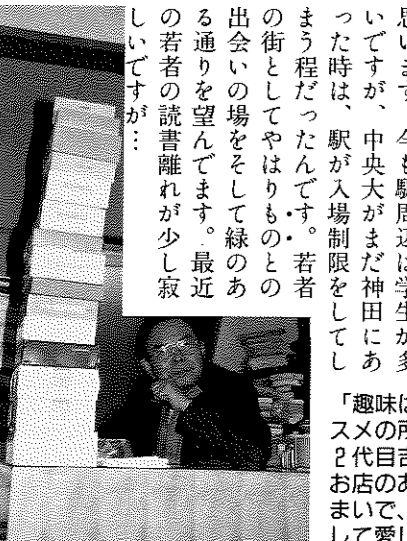 思います。今も駅周辺は学生が多
いですが、中央大がまだ神田にあ
った時は、駅が入場制限をしてし
まう程だったんです。若者
の街としてやはりものとの
出会いの場をそして緑のあ
る通りを望んでます。最近
の若者の読書離れが少し寂
しいですが…
「趣味は
スメの所
2代目吉
お店のあ
まいで、
して愛し